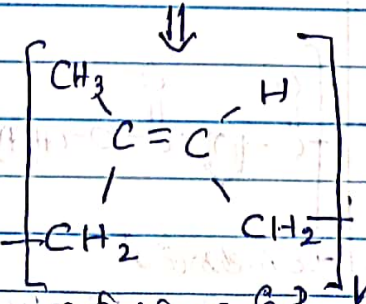 ⇓
CH3 H
C = C
CH2 CH2